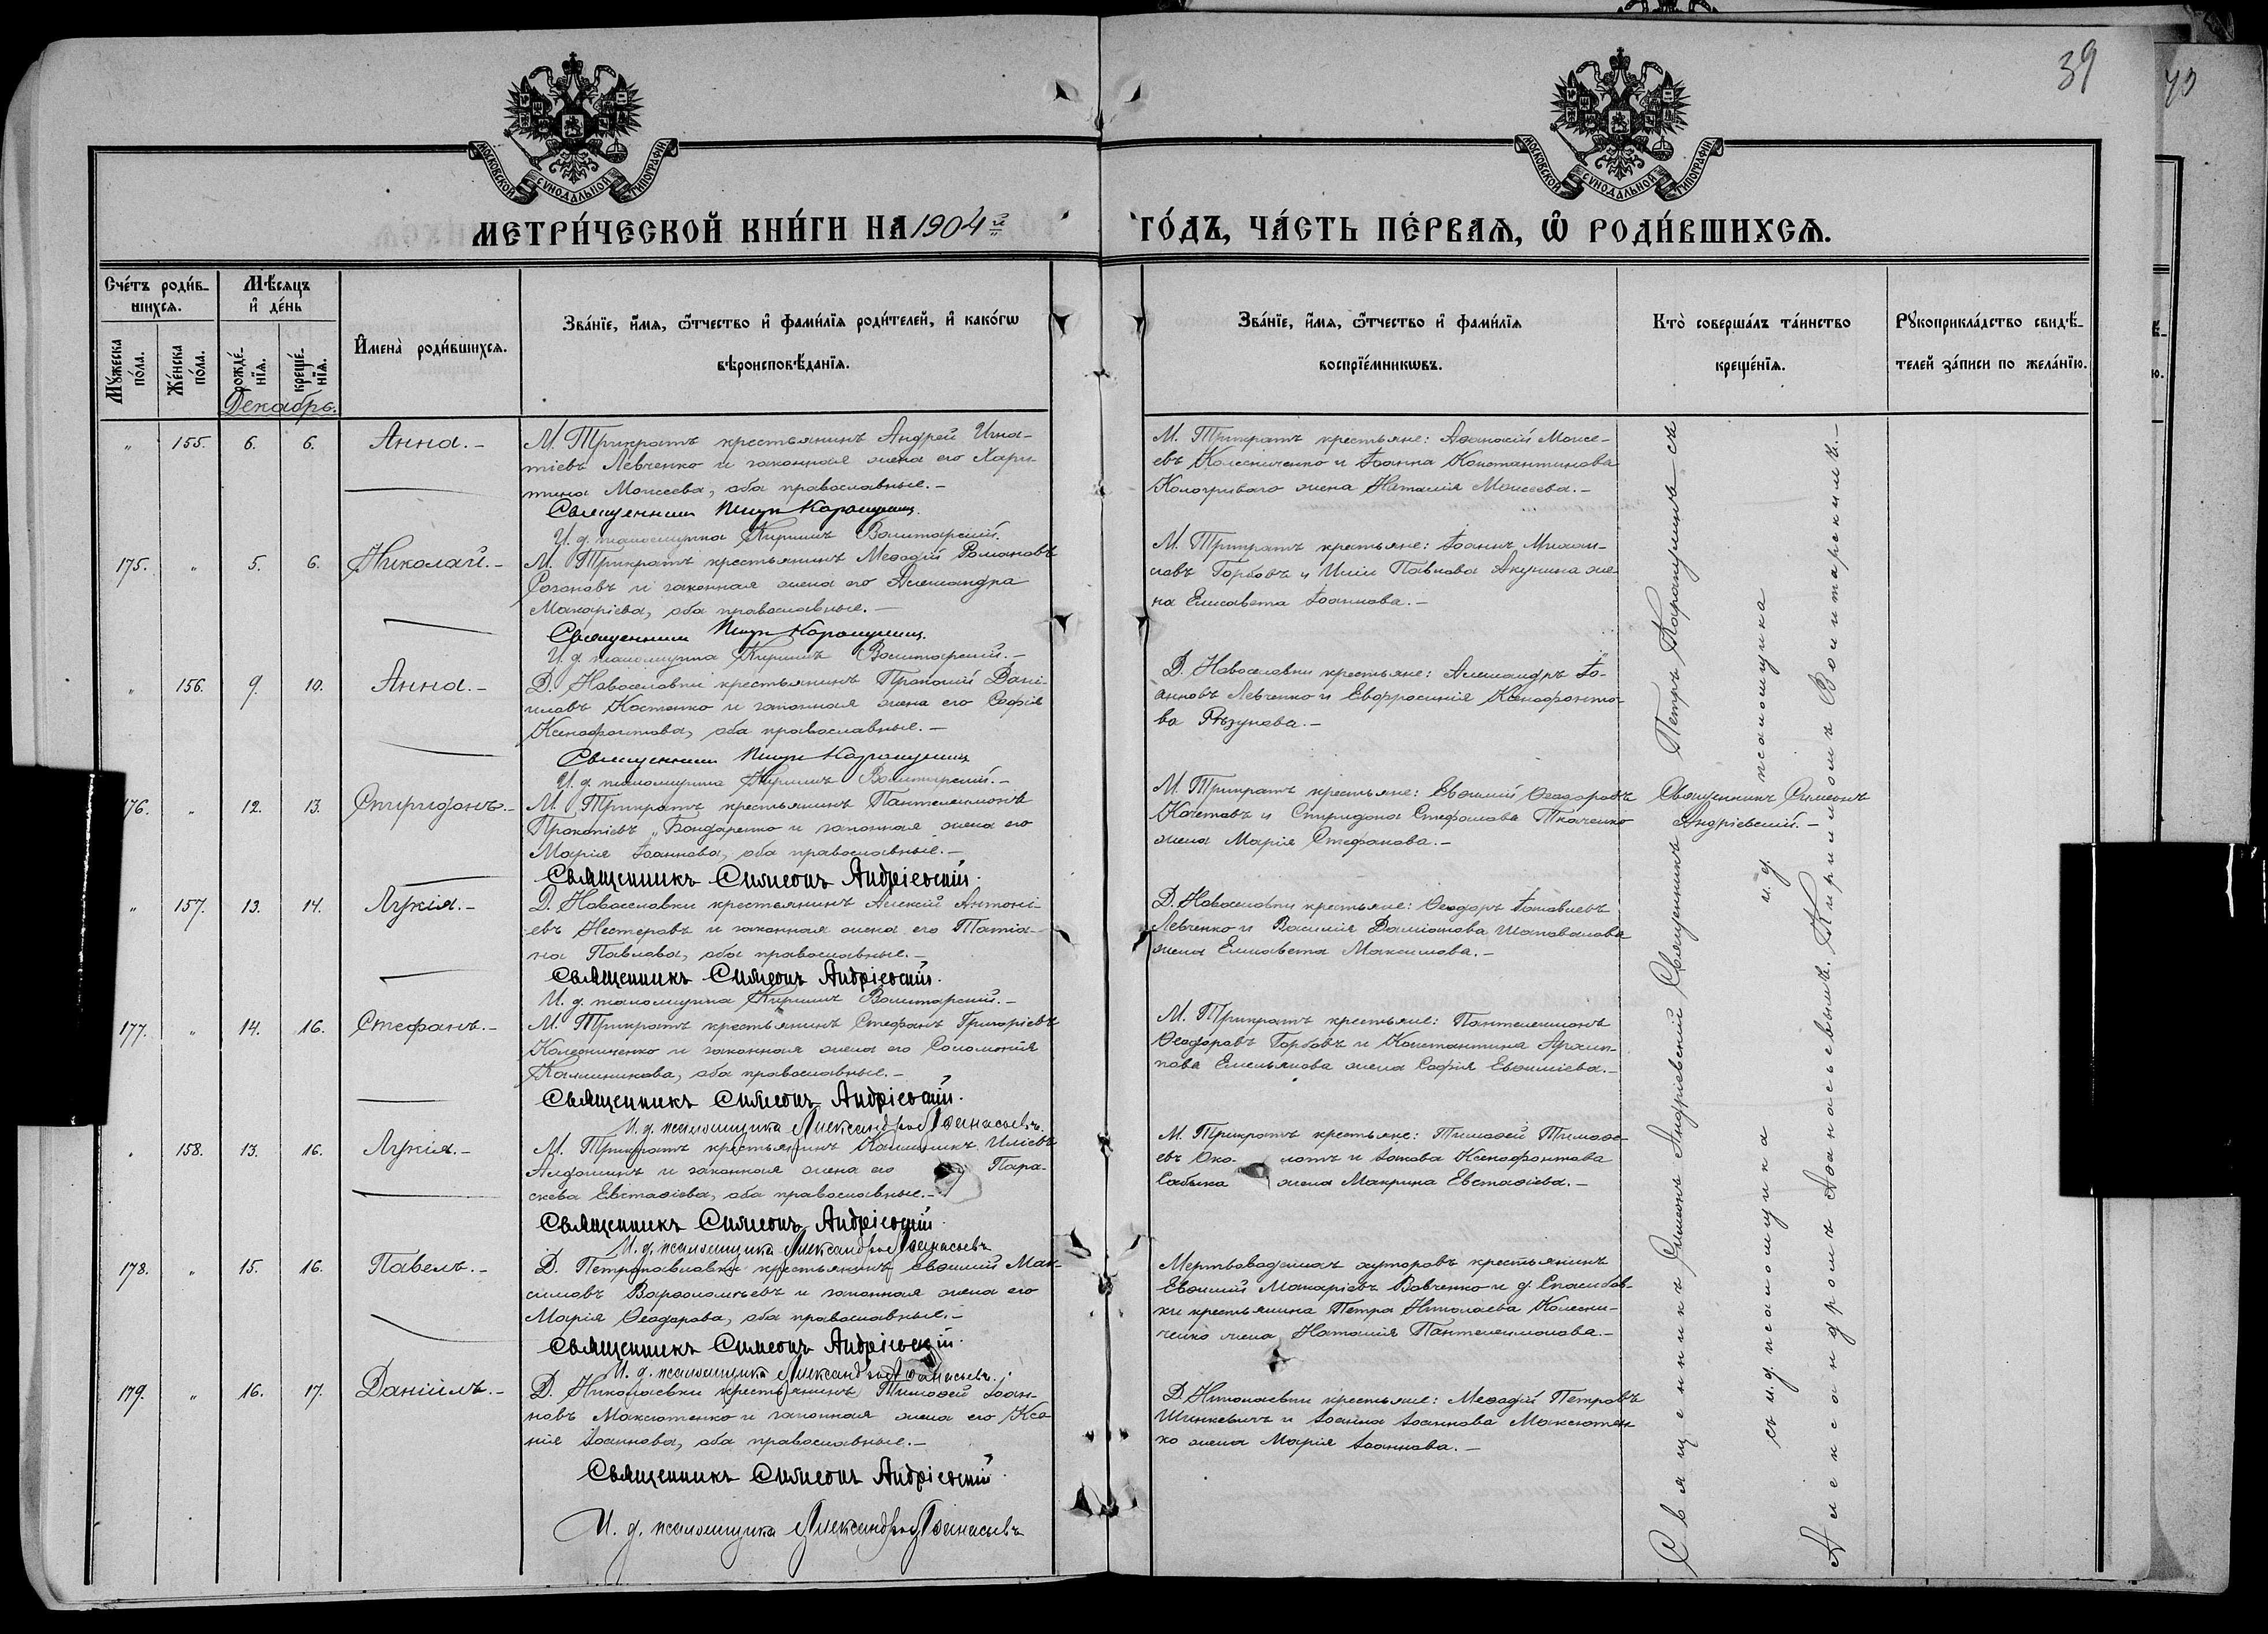 39
40
МОСКОВСКОЙ СУНОДАЛЬНОЙ ТИПОГРАФІИ
МОСКОВСКОЙ СУНОДАЛЬНОЙ ТИПОГРАФІИ
МЕТРИ́ЧЕСКОЙ КНИ́ГИ НА 1904й
ГО́ДЪ, ЧА́СТЬ ПЕ́РВАѦ, Ѽ РОДИ́ВШИХСѦ.
Сче́тъ роди́в-
шихсѧ.
Мꙋ́жеска по́ла.
Же́нска по́ла.
Мѣ́сяцъ
и҆ де́нь
рожде́-
нїѧ.
креще́-
нїѧ.
Декабрь.
И҆мена̀ роди́вшихсѧ.
Зва́нїе, и҆́мѧ, ѻ҆́тчество и҆ фами́лїѧ роди́телей, и҆ како́гѡ
вѣроисповѣ́данїѧ.
Зва́нїе, и҆́мѧ, ѻ҆́тчество и҆ фами́лїѧ
воспрїе́мникѡвъ.
Кто̀ соверша́лъ та́инство
креще́нїѧ.
Рꙋкоприкла́дство свидѣ́-
телей за́писи по жела́нїю.
" 155. 6. 6. Анна.-
М. Трикратъ крестьянинъ Андрей Игна-
тіевъ Левченко и законная жена его Хари-
тина Моисеева, оба православные.-
Священникъ Петръ Карашулинъ
И. д. псаломщика Кириллъ Волитарскій.
М. Трикратъ крестьяне: Аѳанасій Моисе-
евъ Колесниченко и Іоанна Константинова
Кологриваго жена Наталія Моисеева.-
175. " 5. 6. Николай.-
М. Трикратъ крестьянинъ Меѳодій Романовъ
Созоновъ и законная жена его Александра
Макаріева, оба православные.-
Священникъ Петръ Карашулинъ
И. д. псаломщика Кириллъ Волитарскій.-
М. Трикратъ крестьяне: Іоаннъ Михаи-
ловъ Горбовъ и Иліи Павлова Акулина же-
на Елисавета Іоаннова.-
" 156. 9. 10. Анна.-
Д. Новоселовки крестьянинъ Прокопій Дани-
иловъ Костенко и законная жена его Софія
Ксенофонтова, оба православные.-
Священникъ Петръ Карашулинъ
И. д. псаломщика Кириллъ Волитарскій.-
Д. Новоселовки крестьяне: Александръ Іо-
анновъ Левченко и Евфросинія Ксенофонто-
ва Рѣзунова.-
176. " 12. 13. Спиридонъ.-
М. Трикратъ крестьянинъ Пантелеимонъ
Прокопіевъ Бондаренко и законная жена его
Марія Іоаннова, оба православные.-
Священникъ Симеонъ Андріевскій.
М. Трикратъ крестьяне: Евѳимій Ѳеодоровъ
Кочетовъ и Спиридона Стефанова Ткаченко
жена Марія Стефанова.-
Священникъ Симеонъ
Андріевскій.-
" 157. 13. 14. Лукія.-
Д. Новоселовки крестьянинъ Алексій Антоні-
евъ Нестеровъ и законная жена его Татіа-
на Павлова, оба православные.-
Священникъ Симеонъ Андріевскій.
И. д. псаломщика Кириллъ Волитарскій.-
Д. Новоселовки крестьяне: Ѳеодоръ Іаковлевъ
Левченко и Василія Даміанова Шаповалова
жена Елисавета Максимова.-
177. " 14. 16. Стефанъ.-
М. Трикратъ крестьянинъ Стефанъ Григоріевъ
Колесниченко и законная жена его Соломонія
Каллиникова, оба православные.-
Священникъ Симеонъ Андріевскій.
И. д. псаломщика Александръ Аѳанасьевъ.
М. Трикратъ крестьяне: Пантелеимонъ
Ѳеодоровъ Горбовъ и Константина Архип-
пова Емельянова жена Софія Евѳиміева.-
" 158. 13. 16. Лукія.-
М. Трикратъ крестьянинъ Каллиникъ Иліевъ
Алдошинъ и законная жена его Пара-
скева Евстаѳіева, оба православные.-
Священникъ Симеонъ Андріевскій.
И. д. псаломщика Александръ Аѳанасьевъ
М. Трикратъ крестьяне: Тимоѳей Тимоѳе-
евъ и Іакова Ксенофонтова
жена Макрина Евстаѳіева.-
178. " 15. 16. Павелъ.-
Д. Петропавловки крестьянинъ Евѳимій Мак-
симовъ Варѳоломѣевъ и законная жена его
Марія Ѳеодорова, оба православные.-
Священникъ Симеонъ Андріевскій.
И. д. псаломщика Александръ Аѳанасьевъ.
Мертвоводскихъ хуторовъ крестьянинъ
Евѳимій Макаріевъ Вовченко и д. Спасибов-
ки крестьянина Петра Николаева Колесни-
ченко жена Наталія Пантелеимонова.-
179. " 16. 17. Даніилъ.-
Д. Николаевки крестьянинъ Тимоѳей Іоан-
новъ Максютенко и законная жена его Ксе-
нія Іоаннова, оба православные.-
Священникъ Симеонъ Андріевскій.
И. д. псаломщика Александръ Аѳанасьевъ
Д. Николаевки крестьяне: Меѳодій Петровъ
Шинкевичъ и Іоанна Іоаннова Максютен-
ко жена Марія Іоаннова.-
Священникъ Симеонъ Андріевскій Священникъ Петръ Карашулинъ съ
съ и. д. псаломщика и. д. псаломщика
Александромъ Аѳанасьевымъ. Кирилломъ Волитарскимъ.-